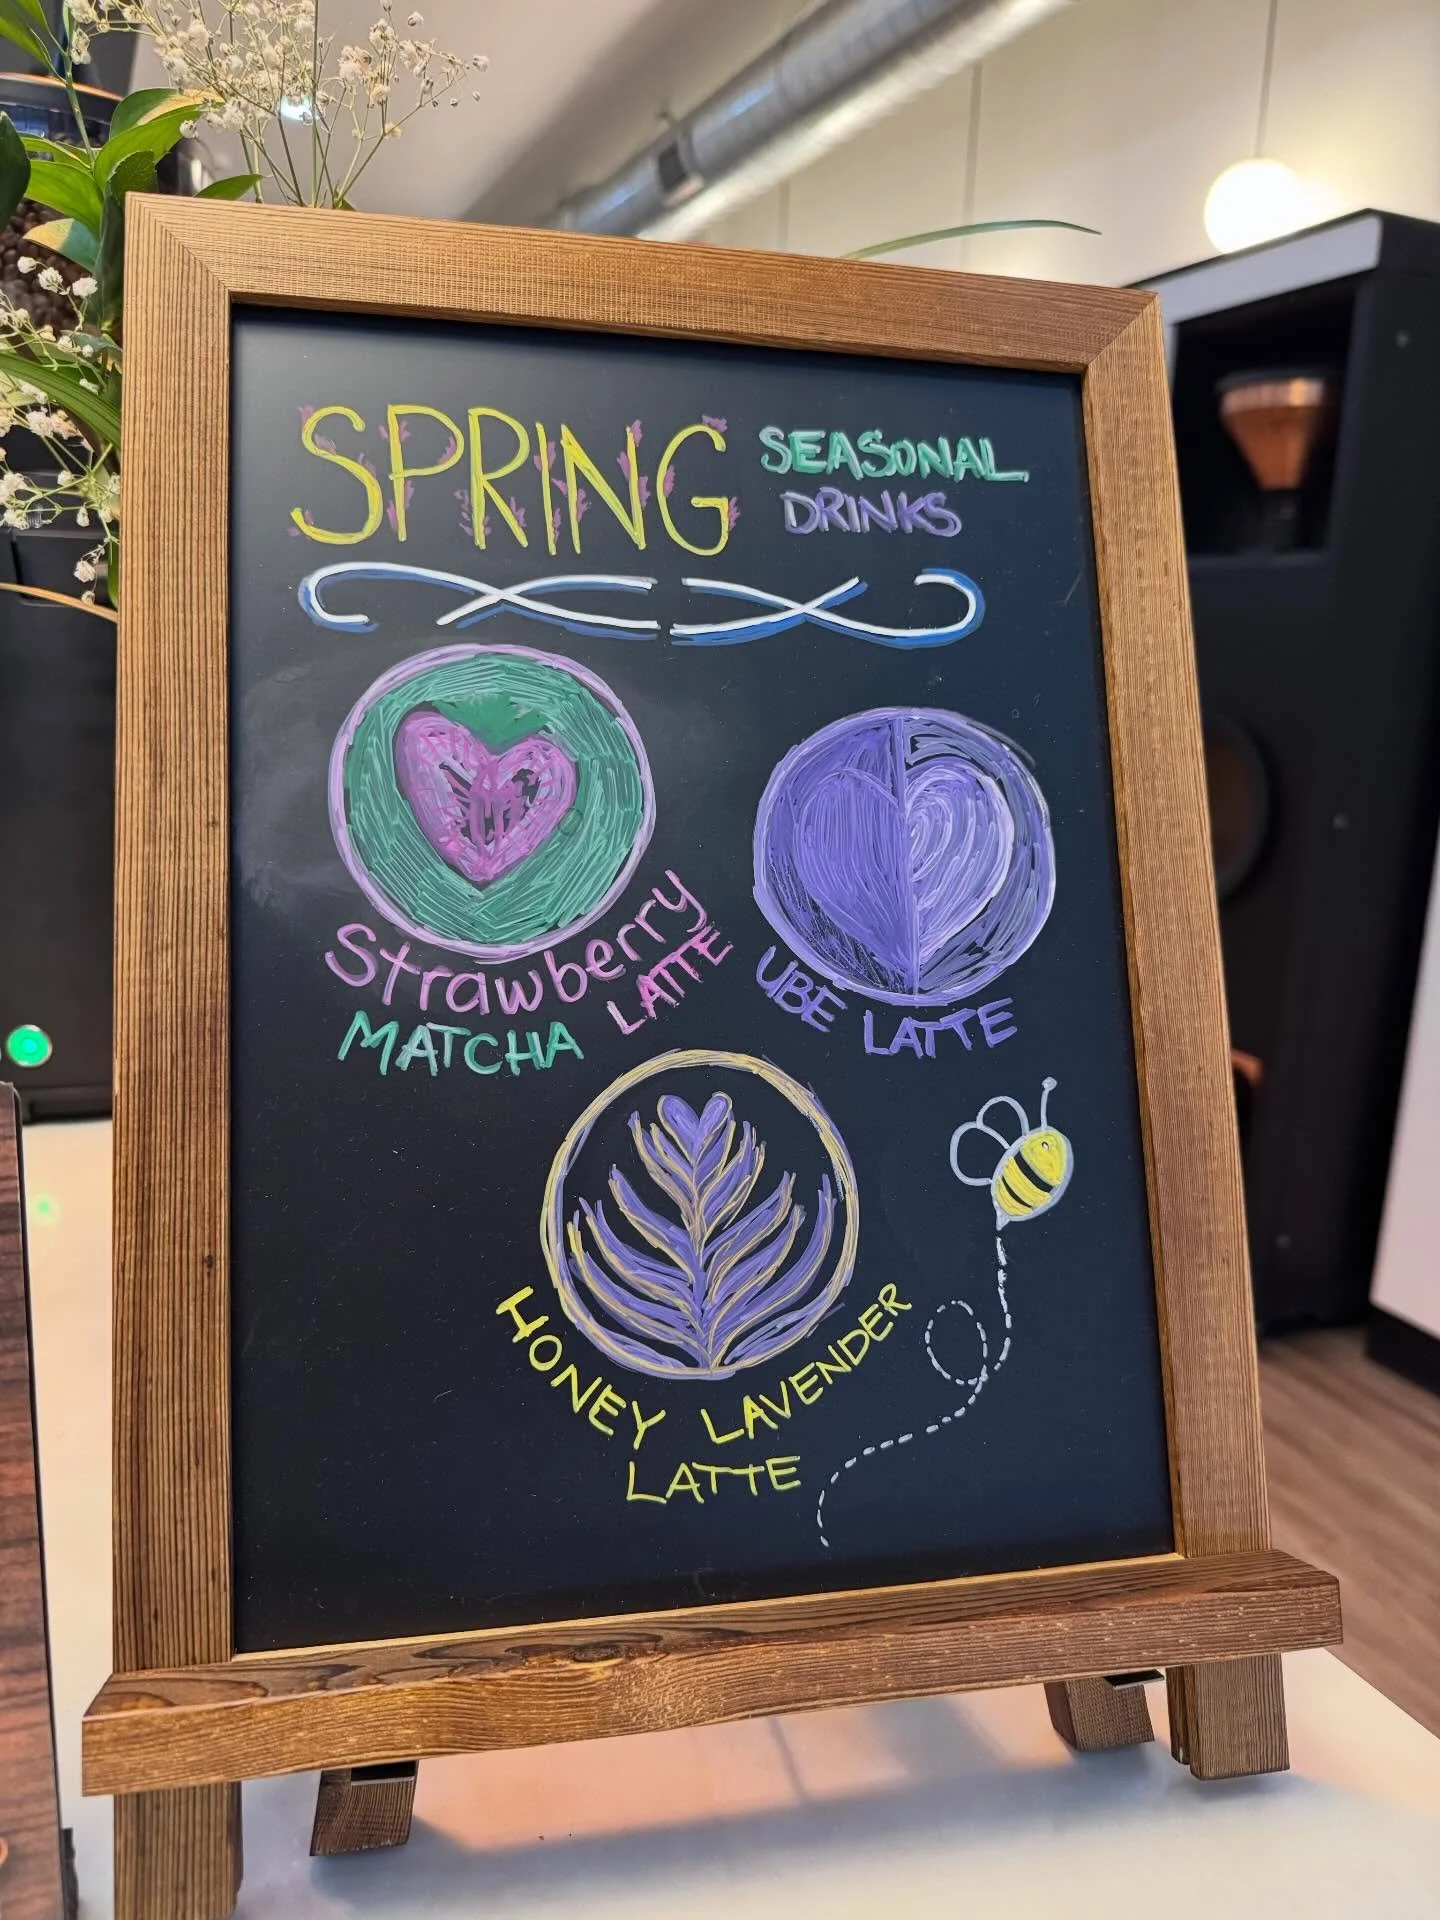 SPRING SEASONAL
DRINKS
Strawberry
MATCHA LATTE
UBE LATTE
HONEY LAVENDER
LATTE